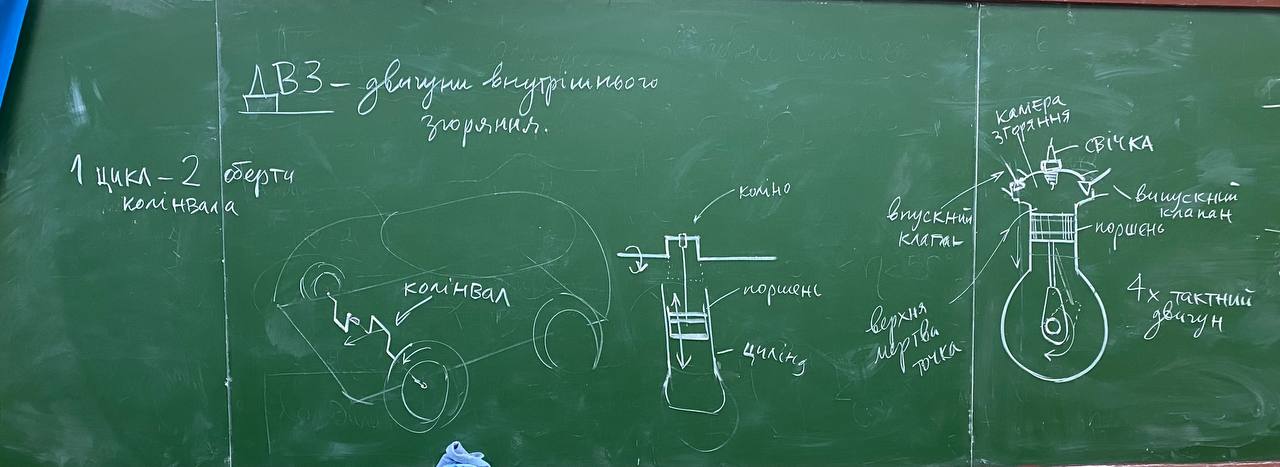 ДВЗ – двигуни внутрішнього
згоряння.
1 цикл – 2 оберти
колінвала
колінвал
коліно
поршень
цилінд
камера
згоряння
свічка
впускний
клапан
випускний
клапан
поршень
верхня
мертва
точка
4х тактний
двигун